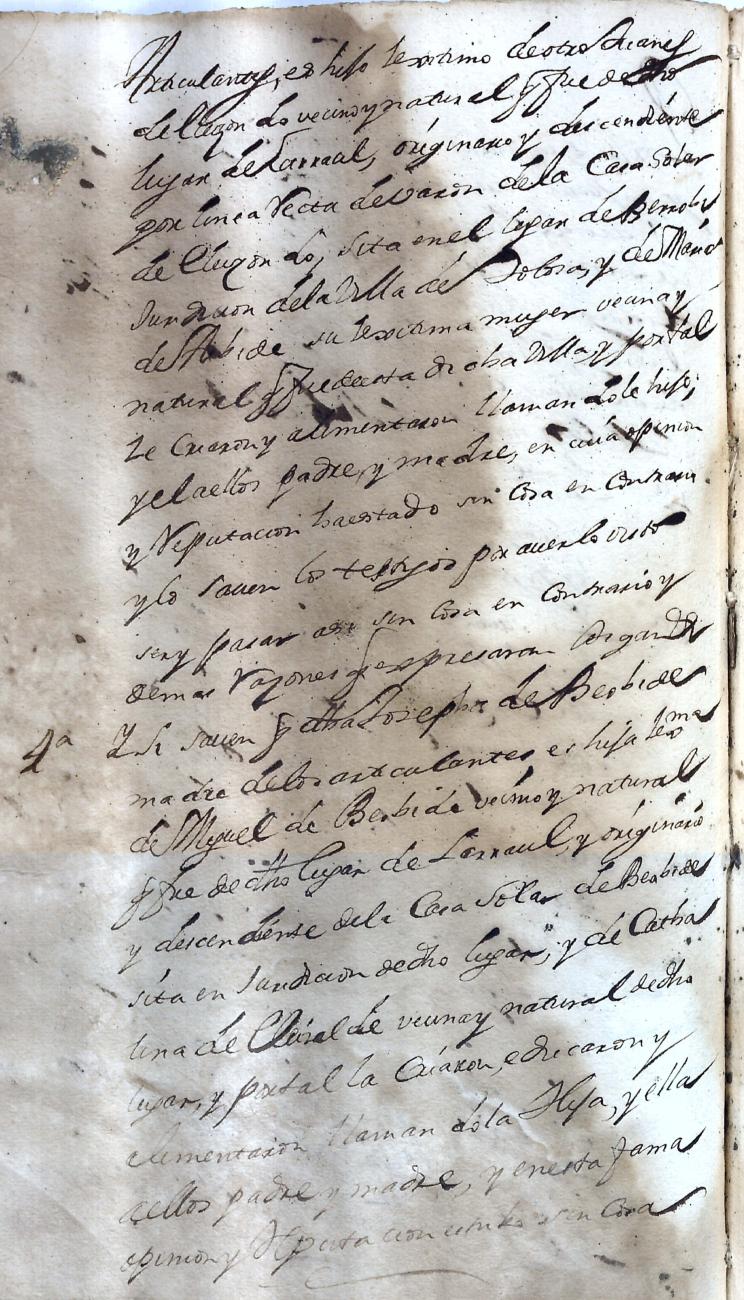 Articulantes, es hijo lexitimo de otro Juanes
de Elizondo vecino y natural q fue de dho
lugar de Larraul, originario y descendiente
por linea Recta de varon de la Casa Solar
de Elizondo, sita en el lugar de Berrobi
Juridicion de la Villa de Tolosa, y de Maria
de su lexitima muger vecina y
natural q fue desta dicha Villa, y por tal
le Criaron y alimentaron llamandole hijo,
y el a ellos padre, y madre, en cuia opinion
y Reputacion ha estado sin cosa en contrario
y lo saven los testigos por averlo visto
ser y pasar asi sin Cosa en Contrario y
demas Razones q expresaran Digan Dr
4ª Y Si saven q dha Josepha de Berbide
madre de los articulantes es hija lexma
de Miguel de Berbide vecino y natural
q fue de dho lugar de Larraul, y originario
y descendiente de la Casa Solar de Berbide
sita en Juridicion de dho lugar, y de Catha
lina de vecina y natural de dho
lugar, y por tal la Criaron, educaron y
alimentaron llamandola Hija, y ella
a ellos padre y madre, y en esta fama
opinion y Reputacion estubo sin Cosa